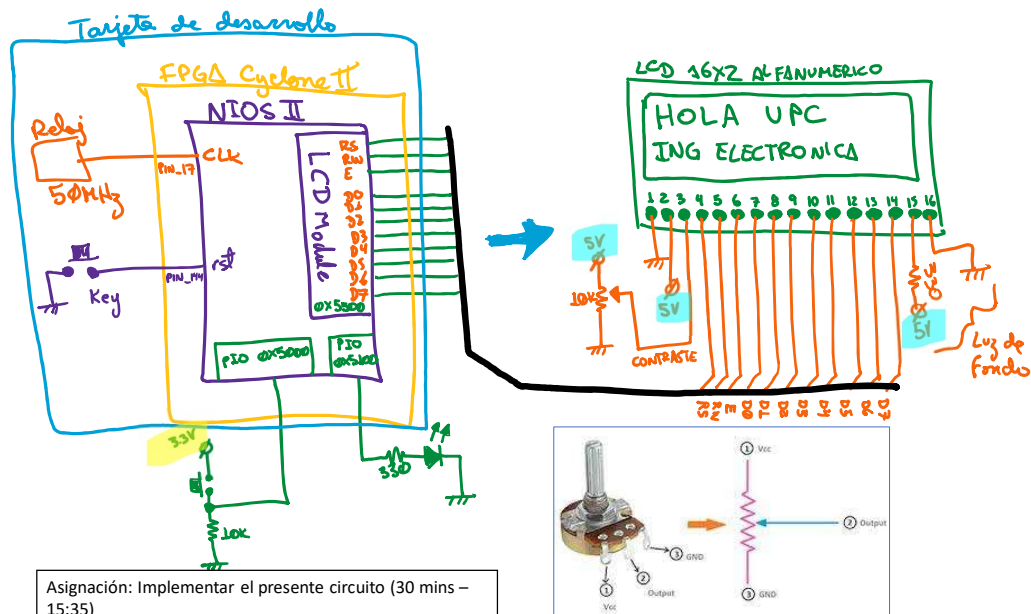 Tarjeta de desarrollo
FPGA Cyclone II
NIOS II
Reloj
50MHz
PIN_17
CLK
Key
PIN_144
rst
LCD Module
RS
RW
E
D0
D1
D2
D3
D4
D5
D6
D7
0x5300
PIO 0x5000
PIO
0x5100
3.3V
10K
330
LCD 16X2 ALFANUMERICO
HOLA UPC
ING ELECTRONICA
1 2 3 4 5 6 7 8 9 10 11 12 13 14 15 16
5V
10K
5V
CONTRASTE
330
5V
Luz de
Fondo
RS RW E D0 D1 D2 D3 D4 D5 D6 D7
1 Vcc
2 Output
3 GND
3 GND
2
Output
1
Vcc
Asignación: Implementar el presente circuito (30 mins –
15:35)